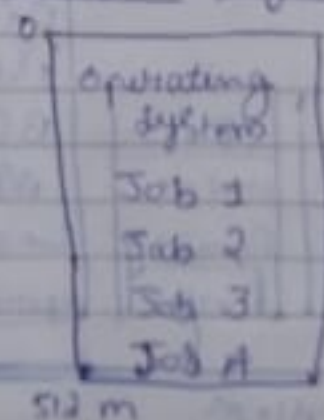 0
Operating
System
Job 1
Job 2
Job 3
Job A
512 m